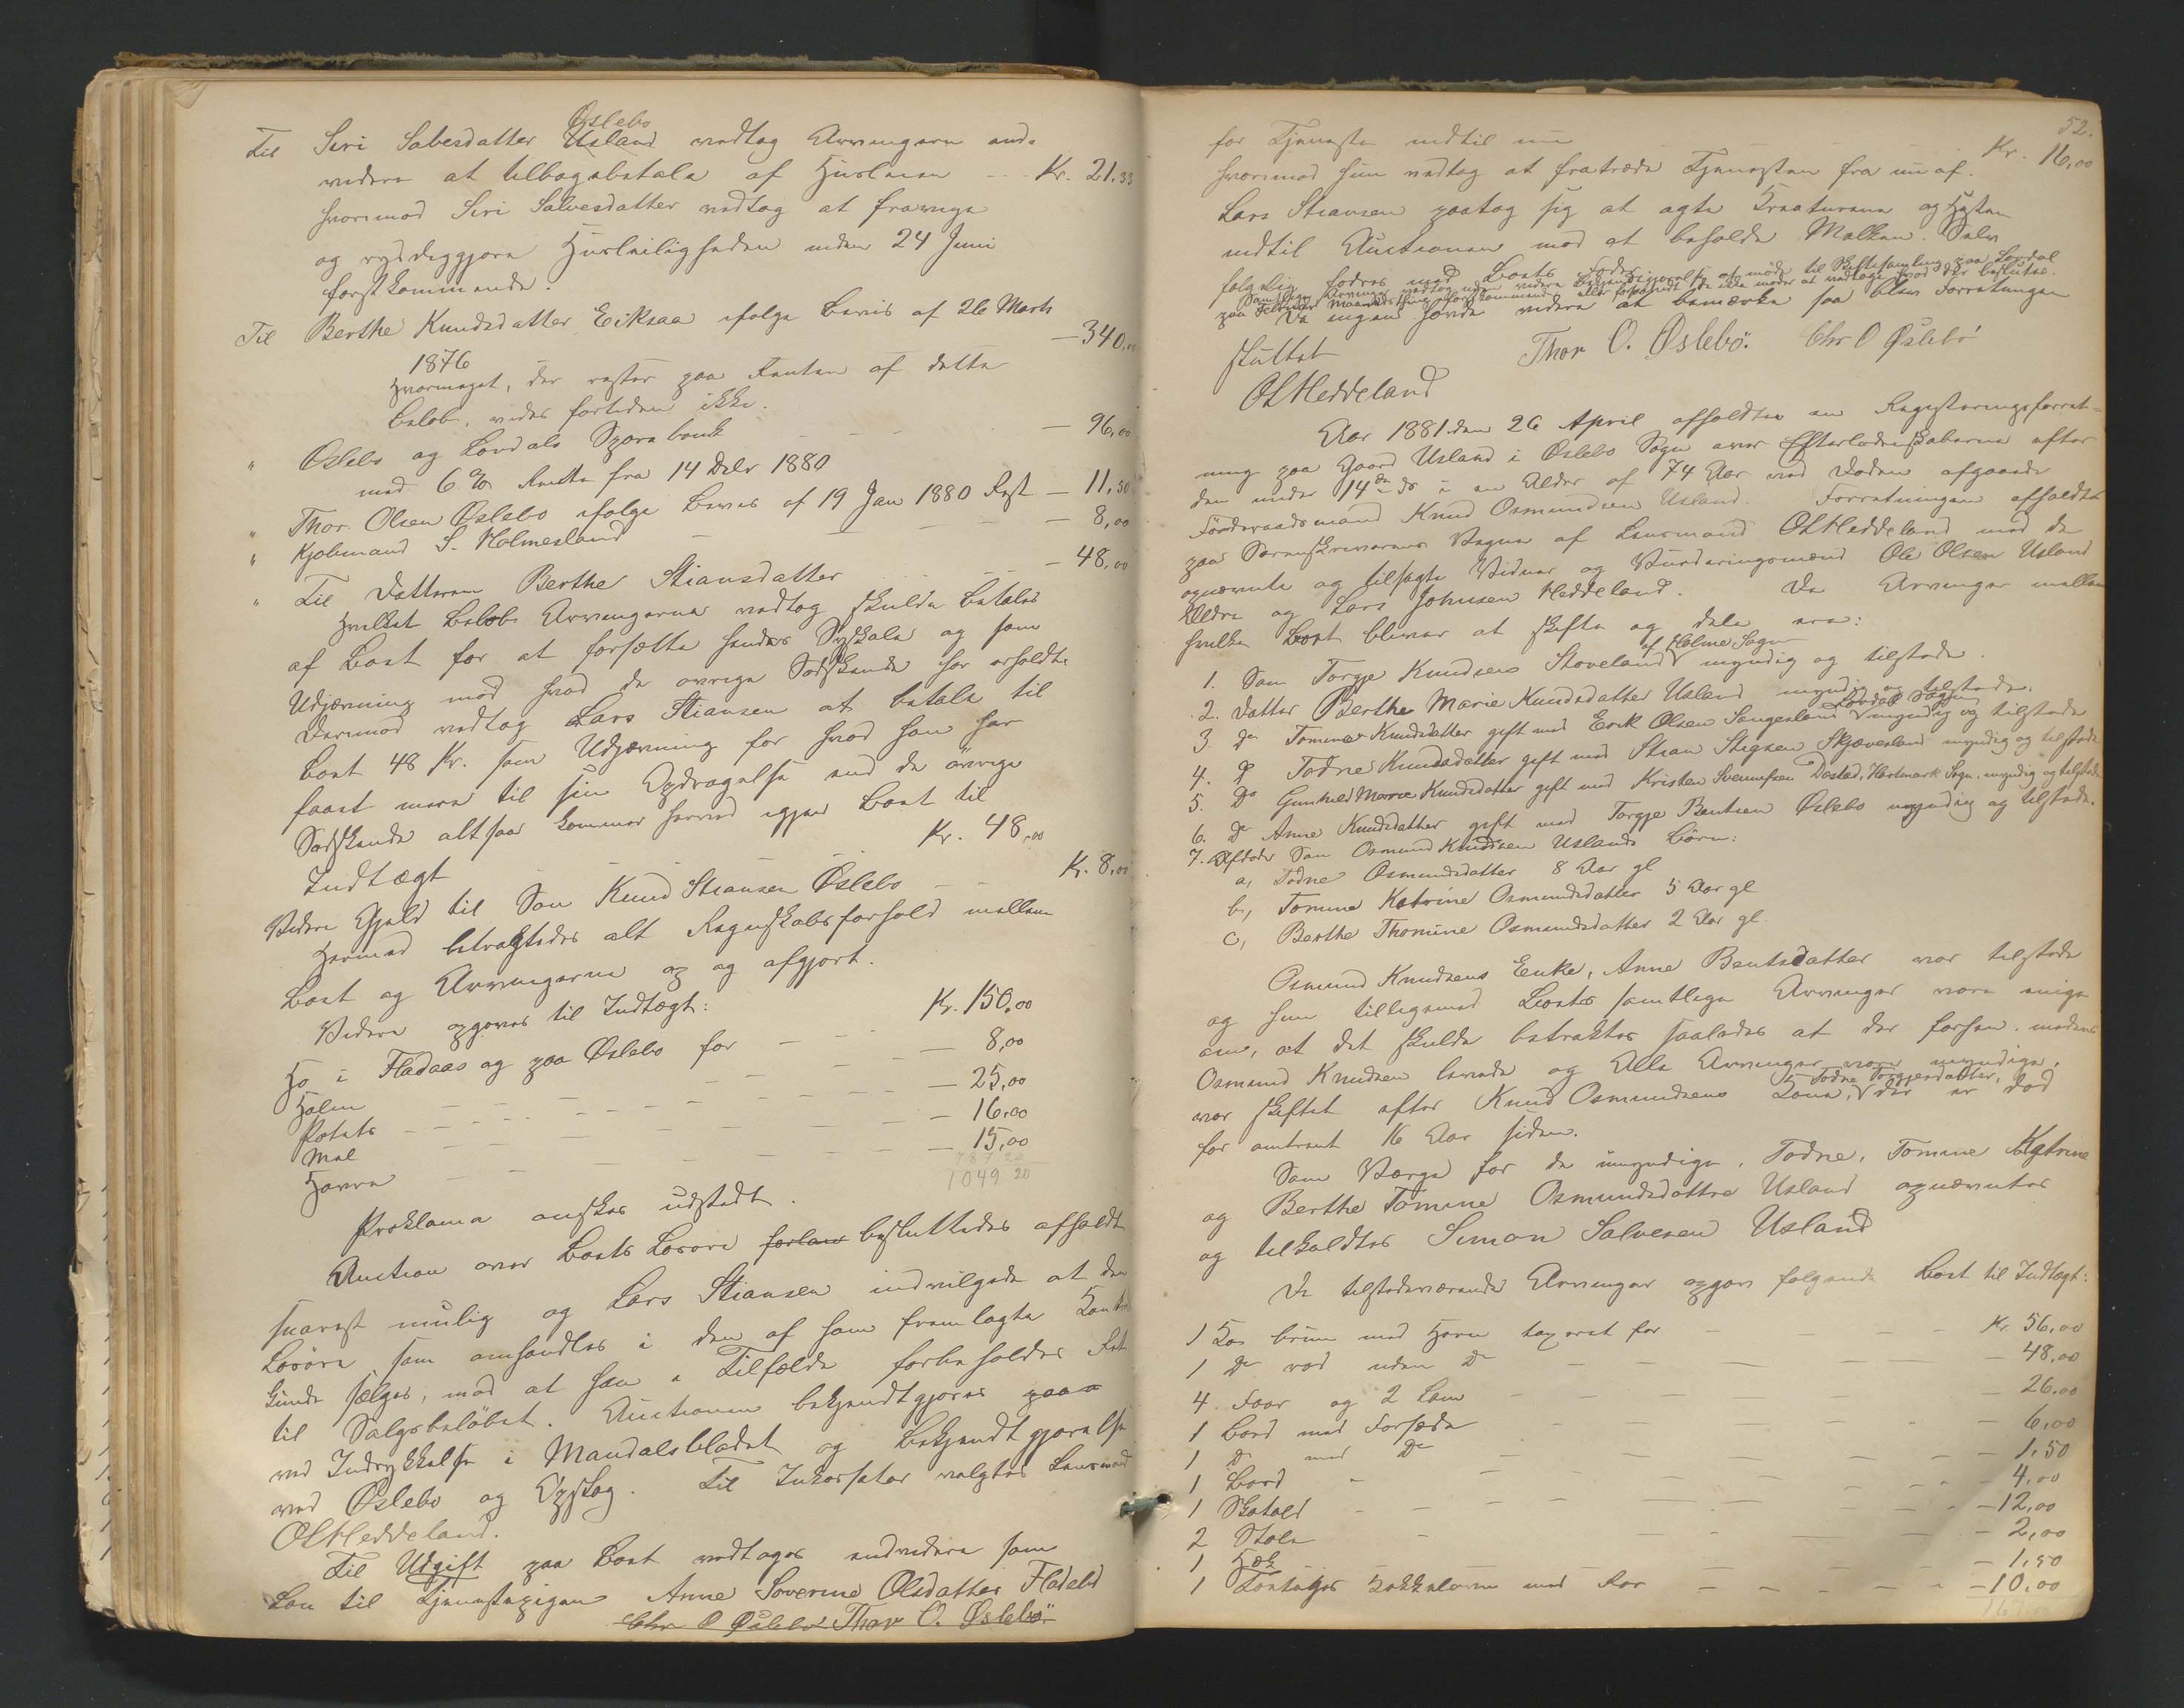 Øslebø
Til Siri Salvesdatter Usland vedtog Arvingerne end-
videre at tilbagebetale af Huslaan - - - Kr. 21,33
hvorimod Siri Salvesdatter vedtog at fravige
og ryddeggjøre Husleiligheden inden 24 Juni
førstkommende.
Til Berthe Knudsdatter Eiksaa ifølge Bevis af 26 Marts
1876 — 340,00
Hvormeget, der rester paa Renten af dette
Beløb, vides fortiden ikke.
" Øslebø og Løvdals Sparebank - - - — 96,00
med 6 % Rente fra 14 Debr 1880
" Thor Olsen Øslebø ifølge Bevis af 19 Jan 1880 Rest — 11,50
" Kjøbmand S. Holmesland — — — — 8,00
" Til Datteren Berthe Stiansdatter - - - — 48,00
Hvilket Beløb Arvingerne vedtog skulde betales
af Boet for at forsætte hendes Syskole og som
Udjævning mod hvad de øvrige Sødskende har erholdt.
Derimod vedtog Lars Stiansen at betale til
Boet 48 Kr. som Udjævning for hvad han har
faaet mere til sin Opdragelse end de øvrige
Sødskende altsaa kommer herved igjen Boet til
Indtægt - - - Kr. 48,00
Videre Gjæld til Søn Knud Stiansen Øslebø - - Kr. 8,00
Hermed betragtedes alt Regnskabsforhold mellem
Boet og Arvingerne op og afgjort.
Videre opgives til Indtægt:
Hø i Fladaas og paa Øslebø for - - Kr. 150,00
Halm — — — — 8,00
Potets — — — — 25,00
Mel — — — — 16,00
Havre — — — — 15,00
787 20
1049 20
Proklama ønskes udstedt.
Auction over Boets Løsøre forlan besluttedes afholdt
snarest mulig og Lars Stiansen indvilgede at den
Løsøre som omhandles i den af ham fremlagte Kontra
kunde sælges, mod at han i Tilfælde forbeholder Ret
til Salgsbeløbet. Auctionen bekjendtgjøres paa
ved Indrykkelse i Mandalsbladet og Bekjendtgjørelse
ved Øslebø og Opslag. Til Inkassator valgtes Lensmand
O H Heddeland.
Til Udgift paa Boet vedtages endvidere som
Løn til Tjenestepigen Anne Severine Olsdatter Fladebø
Chr O Øslebø Thor O. Øslebö
52.
for Tjeneste indtil nu Kr. 16,00
hvorimod hun vedtog at fratræde Tjenesten fra nu af.
Lars Stiansen paatog sig at agte Kreaturene og Hesten
indtil Auctionen mod at beholde Melken. Selv
følgelig fodres med Boets Foder.
Samtlige Arvinger vedtog uden videre Bekjendtgjørelse at møde til Skiftesamling paa Løvdal
paa Maanedsthing førstkommende eller forsaavidt de ikke møder at vedtage hvad der besluttes.
Da ingen havde videre at bemærke saa blev Forretningen
sluttet Thor O. Øslebö. Chr O Øslebö
O H Heddeland
Aar 1881 den 26 April afholdtes en Registreringsforret-
ning paa Gaard Usland i Øslebø Sogn over Efterladenskaberne efter
den under 14de ds i en Alder af 74 Aar ved Døden afgaaede
Føderaadsmand Knud Osmundsen Usland. Forretningen afholdtes
paa Sorenskriverens Vegne af Lensmand O H Heddeland med de
opnævnte og tilsagte Vidner og Vurderingsmænd Ole Olsen Usland
Ældre og Lars Johnsen Heddeland. De Arvinger mellem
hvilke Boet bliver at skifte og dele ere:
1. Søn Torgje Knudsen Stoveland af Holme Sogn myndig og tilstede.
2. Datter Berthe Marie Knudsdatter Usland myndig og tilstede.
3 do Tomine Knudsdatter gift med Erik Olsen Sangesland Løvdal Sogn myndig og tilstede
4. do Todne Knudsdatter gift med Stian Stigsen Skjævesland myndig og tilstede
5. do Gunhild Marie Knudsdatter gift med Kristen Svennsen Døsted, Hartmark Sogn, myndig og tilstede
6. do Anne Knudsdatter gift med Torgje Bentsen Øslebø myndig og tilstede.
7. Afdøde Søn Osmund Knudsen Uslands Børn:
a, Todne Osmundsdatter 8 Aar gl
b, Tomine Katrine Osmundsdatter 5 Aar gl
c, Berthe Thomine Osmundsdatter 2 Aar gl
Osmund Knudsens Enke, Anne Bentsdatter var tilstede
og hun tilligemed Boets samtlige Arvinger vare enige
om, at det skulde betraktes saaledes at der forhen, medens
Osmund Knudsen levede og Alle Arvinger vare myndige,
var skiftet efter Knud Osmundsens Kone, Todne Torgjersdatter, der er død
for omtrent 16 Aar siden.
Som Værge for de umyndige, Todne, Tomine Katrine
og Berthe Tomine Osmundsdøttre Usland opnævntes
og tilkaldtes Simon Salvesen Usland
De tilstedeværende Arvinger opgav følgende Boet til Indtægt:
1 Ko brun med Horn taxeret for - - - Kr. 56,00
1 do rød uden do — — — — 48,00
4 Faar og 2 Lam — — — — 26,00
1 Bord med Forsæde — — — — 6,00
1 do med do — — — — 1,50
1 Bord — — — — 4,00
1 Skatoll — — — — 12,00
2 Stole — — — — 2,00
1 Hæk — — — — 1,50
1 Totages Kakkelovn med Rør — — — — 10,00
167